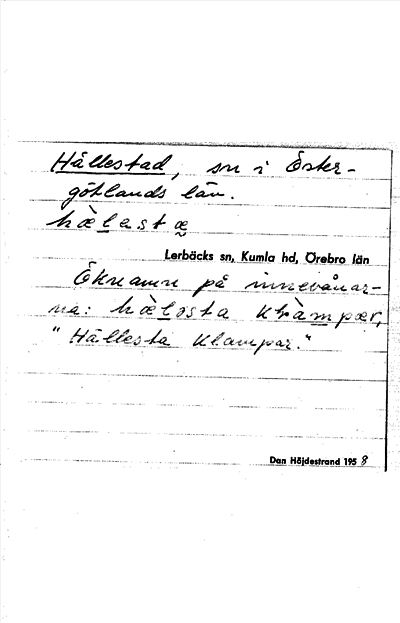 Hällestad, sn i Öster-
götlands län.
hæ̀lest æ
Lerbäcks sn, Kumla hd, Örebro län
Öknamn på innevånar-
na: hæ̀losta kràmpær,
"Hällesta klampar."
Dan Höjdestrand 1958